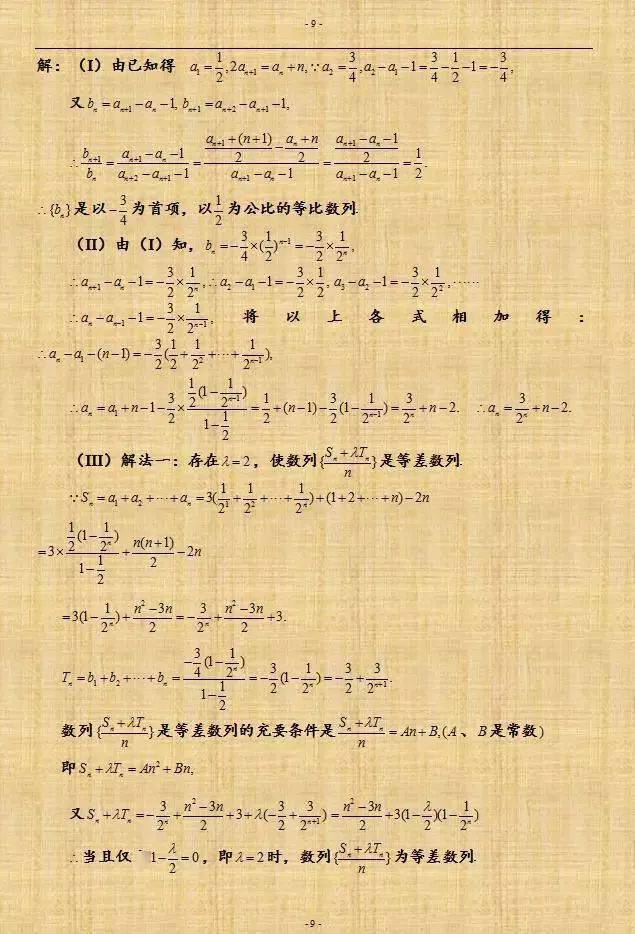 - 9 -
解：(I) 由已知得 a₁=1/2, 2aₙ₊₁=aₙ+n, ∵a₂=3/4, a₂-a₁-1=3/4-1/2-1=-3/4,
又 bₙ=aₙ₊₁-aₙ-1, bₙ₊₁=aₙ₊₂-aₙ₊₁-1,
∴bₙ₊₁/bₙ=(aₙ₊₁-aₙ-1)/(aₙ₊₂-aₙ₊₁-1)=((aₙ₊₁+(n+1))/2-(aₙ+n)/2)/(aₙ₊₁-aₙ-1)=((aₙ₊₁-aₙ-1)/2)/(aₙ₊₁-aₙ-1)=1/2.
∴{bₙ}是以-3/4为首项，以1/2为公比的等比数列.
(II) 由 (I) 知，bₙ=-3/4×(1/2)ⁿ⁻¹=-3/2×1/2ⁿ,
∴aₙ₊₁-aₙ-1=-3/2×1/2ⁿ, ∴a₂-a₁-1=-3/2×1/2, a₃-a₂-1=-3/2×1/2², ……
∴aₙ-aₙ₋₁-1=-3/2×1/2ⁿ⁻¹, 将以上各式相加得：
∴aₙ-a₁-(n-1)=-3/2(1/2+1/2²+⋯+1/2ⁿ⁻¹),
∴aₙ=a₁+n-1-3/2×(1/2(1-1/2ⁿ⁻¹))/(1-1/2)=1/2+(n-1)-3/2(1-1/2ⁿ⁻¹)=3/2ⁿ+n-2. ∴aₙ=3/2ⁿ+n-2.
(III) 解法一：存在λ=2，使数列{(Sₙ+λTₙ)/n}是等差数列.
∵Sₙ=a₁+a₂+⋯+aₙ=3(1/2¹+1/2²+⋯+1/2ⁿ)+(1+2+⋯+n)-2n
=3×(1/2(1-1/2ⁿ))/(1-1/2)+n(n+1)/2-2n
=3(1-1/2ⁿ)+(n²-3n)/2=-3/2ⁿ+(n²-3n)/2+3.
Tₙ=b₁+b₂+⋯+bₙ=(-3/4(1-1/2ⁿ))/(1-1/2)=-3/2(1-1/2ⁿ)=-3/2+3/2ⁿ⁺¹.
数列{(Sₙ+λTₙ)/n}是等差数列的充要条件是(Sₙ+λTₙ)/n=An+B,(A、B是常数)
即Sₙ+λTₙ=An²+Bn,
又Sₙ+λTₙ=-3/2ⁿ+(n²-3n)/2+3+λ(-3/2+3/2ⁿ⁺¹)=(n²-3n)/2+3(1-λ/2)(1-1/2ⁿ)
∴当且仅 1-λ/2=0，即λ=2时，数列{(Sₙ+λTₙ)/n}为等差数列.
- 9 -